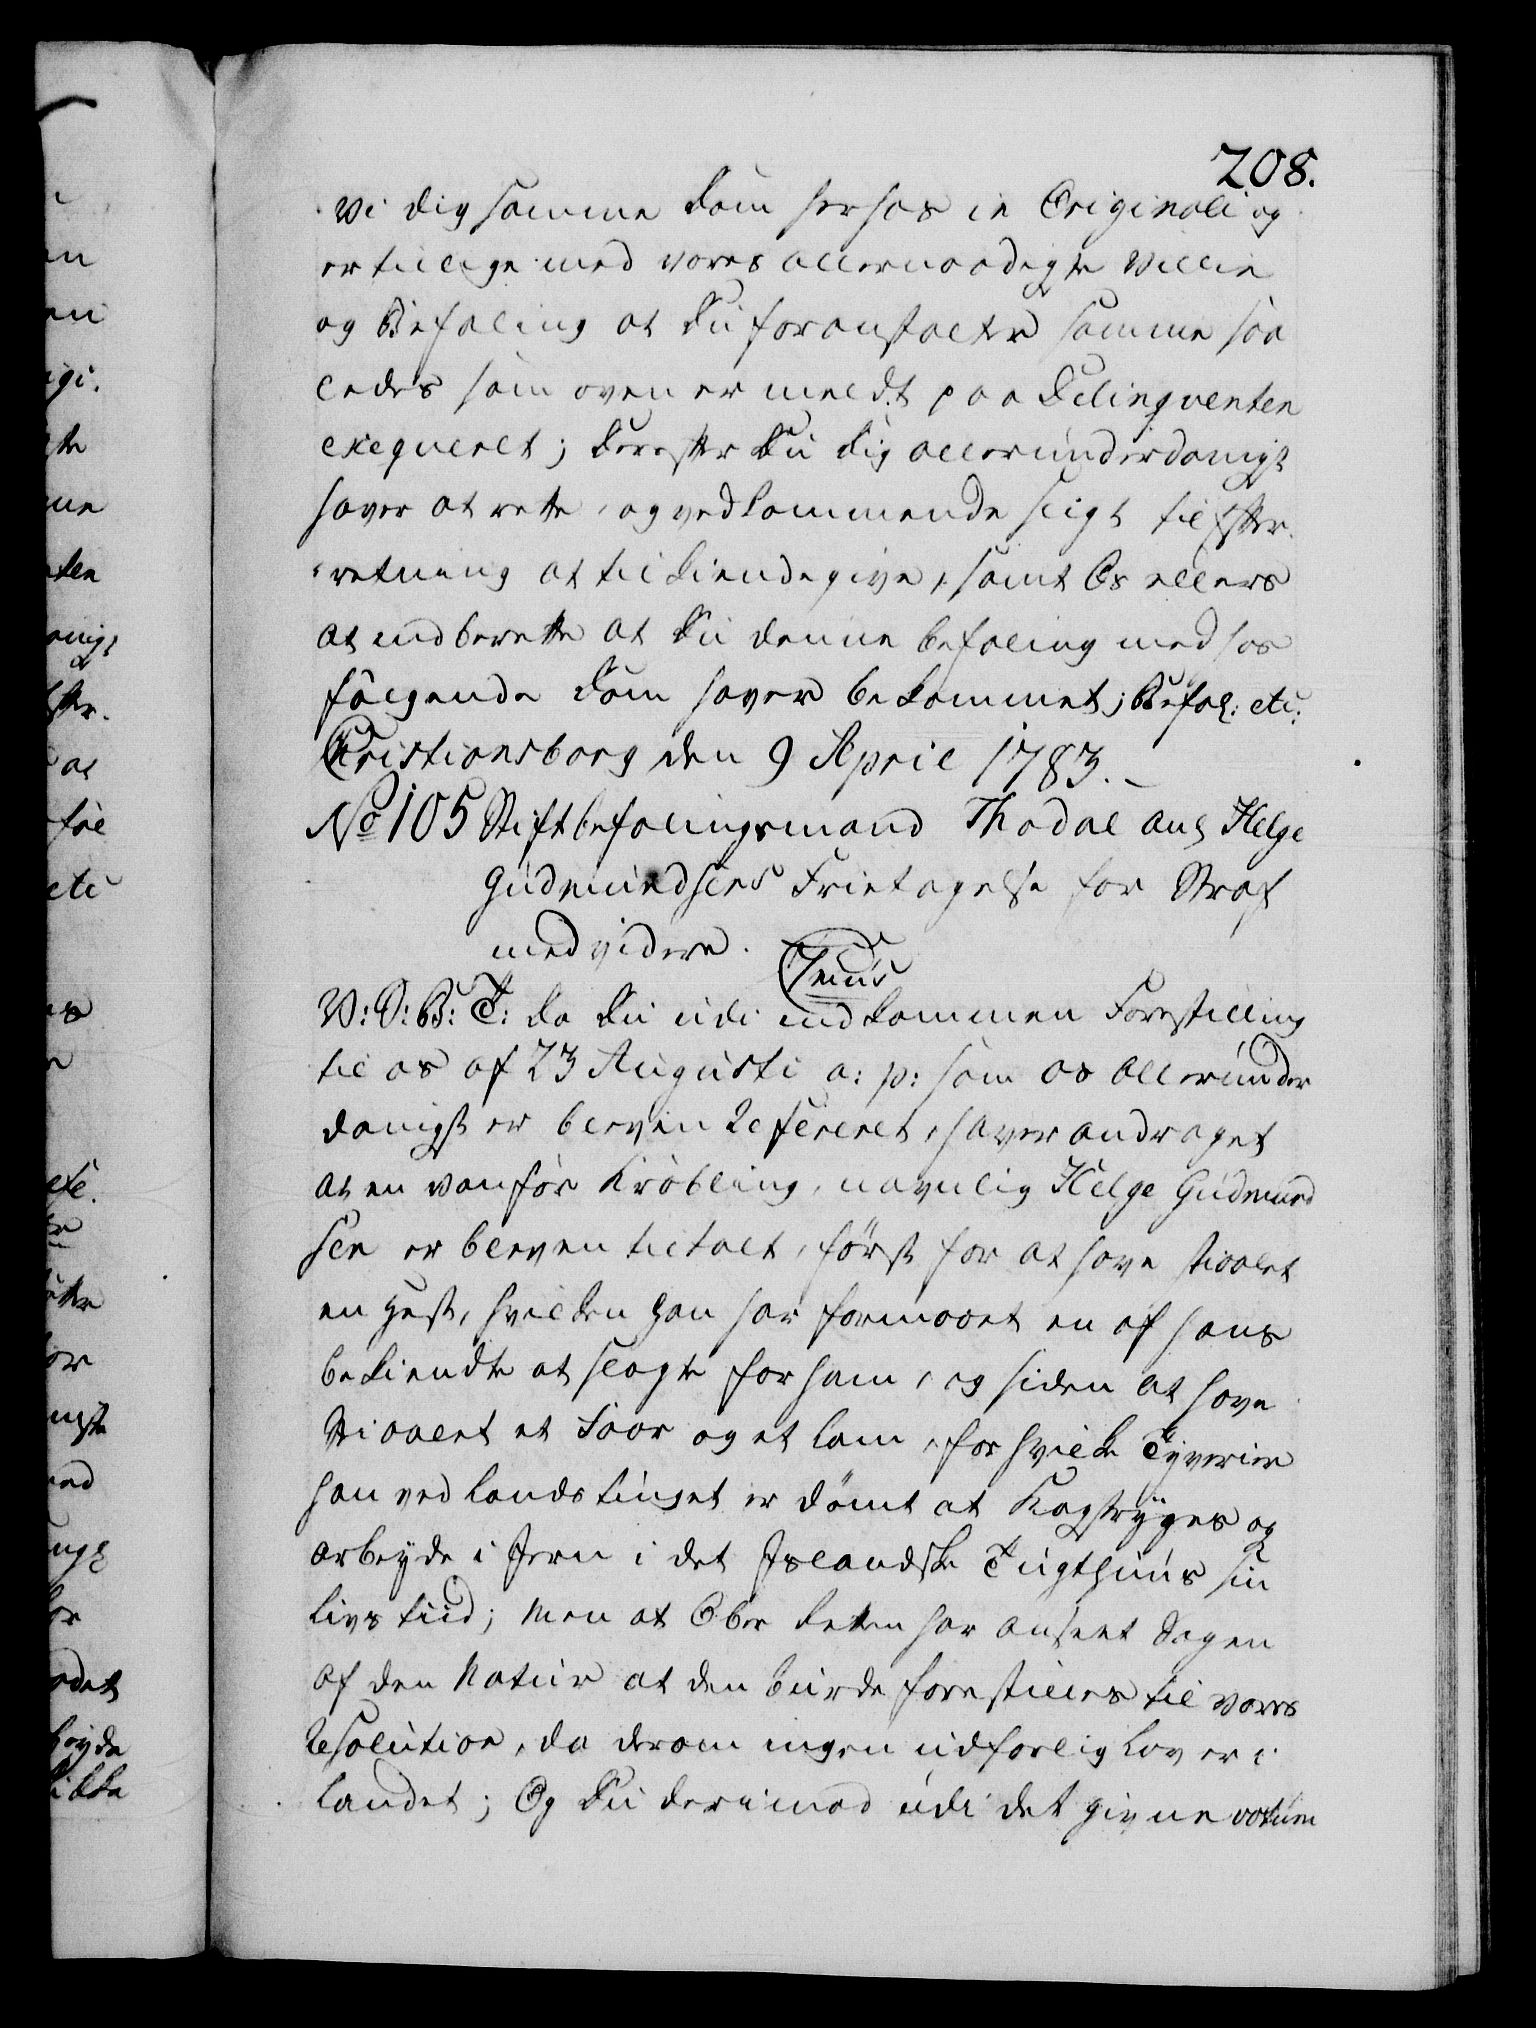 208.
Vi dig samme Dom herhos in Originali og
er tillige med vores allernaadigste Villie
og Befaling at Du foranstalter samme saa
ledes som oven er meldt paa Delinqventen
exeqveret; Derefter Du dig allerunderdanigst
haver at rette, og vedkommende sligt til Efter-
retning at tilkiendegive, samt Os ellers
at indberette at Du denne befaling med hos
følgende Dom haver bekommet; Befal: etc:
Cristiansborg den 9 April 1783.
No 105 Stiftbefalingsmand Thodal ang Helge
Gudmundsens Frietagelse for Straf
med videre.
V: S: G: T: Da Du udi indkommen Forestilling
til os af 23 Augusti a: p: som os allerunder
danigst er bleven Refereret, haver andraget
at en vanfør Krøbling, navnlig Helge Gudmund
sen er bleven tiltalt, først for at have stiaalet
en Hest, hvilken han har formaaet en af hans
bekiendte at slagte for ham, og siden at have
Stiaalet et Faar og et Lam, for hvilke Tyverier
han ved Landstinget er dømt at Kagstryges og
arbeyde i Jern i det Islandske Tugthuus sin
Livs tiid; Men at Ober Retten har anseet Sagen
af den Natur at den burde forestilles til vores
Resolution, da derom ingen udførlig Lov er i
Landet; Og Du derimod udi det givne votum